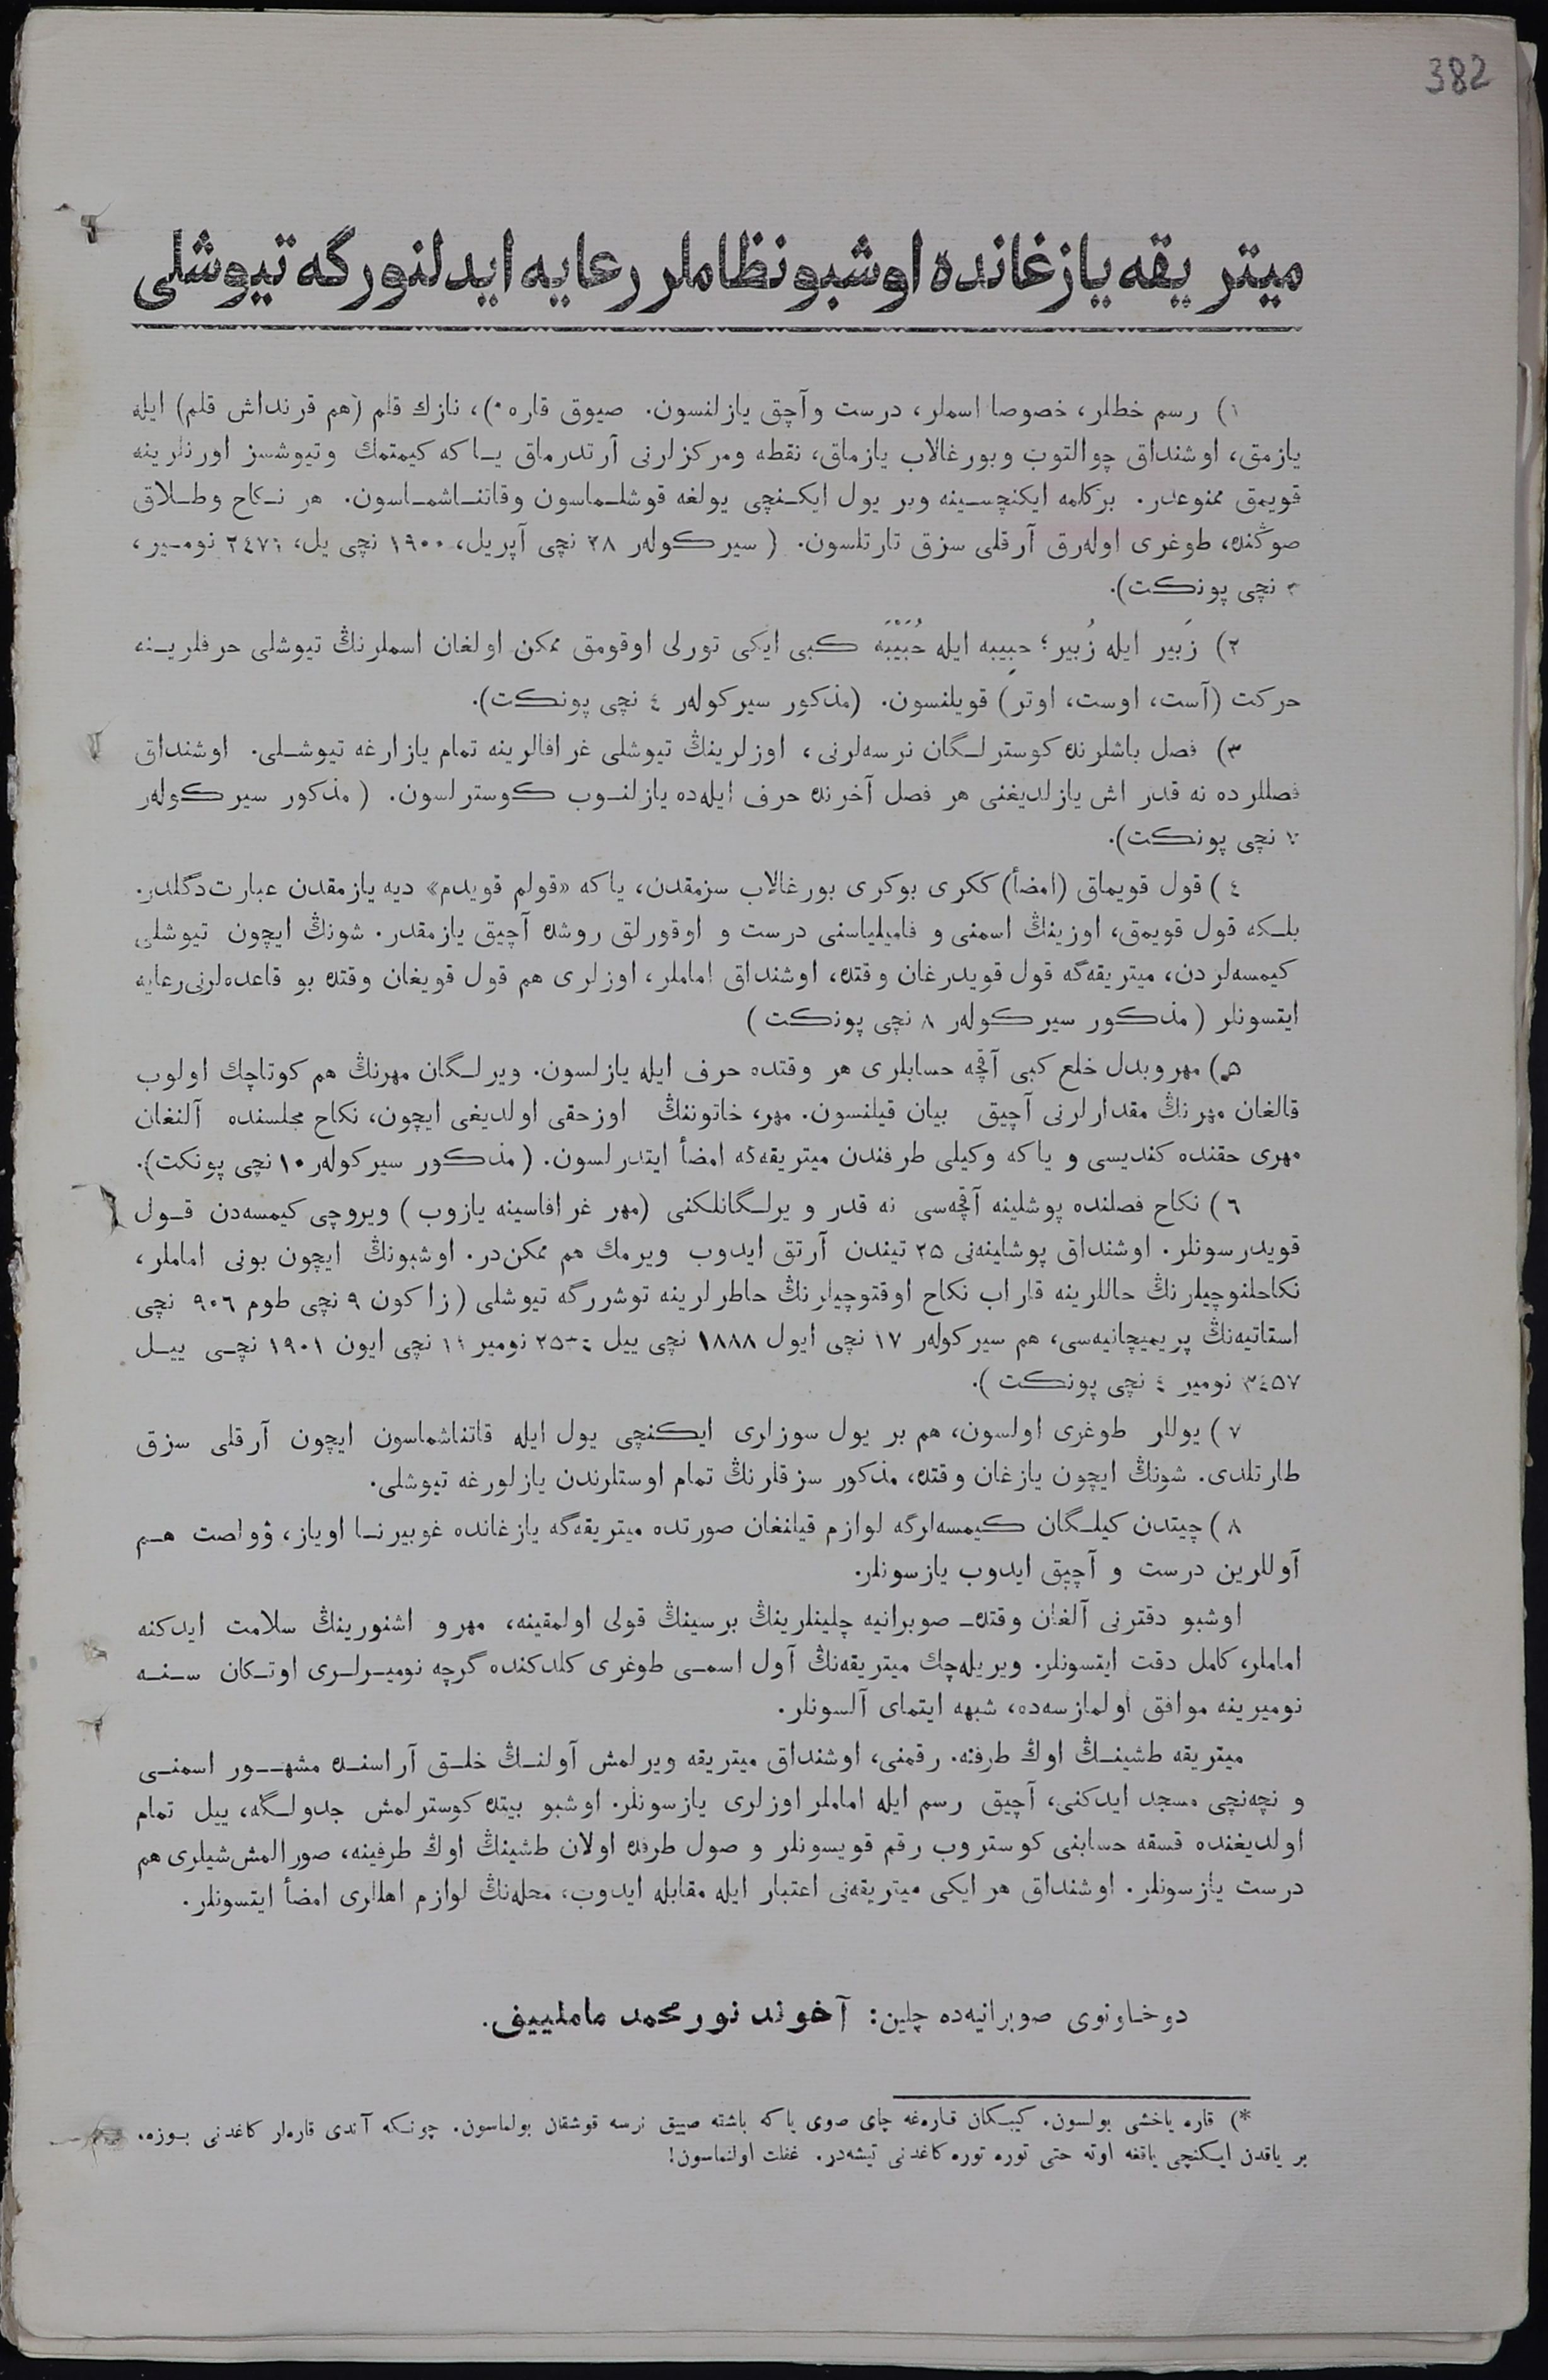 382
میتریقه یازغانده اوشبو نظاملر رعایه ایدلنورگه تیوشلی
۱) رسم خطلر، خصوصا اسملر، درست وآچق یازلنسون. صیوق قاره*)، نازك قلم (هم قرنداش قلم) ایله
یازمق، اوشنداق چوالتوب وبورغالاب یازماق، نقطه ومرکزلرنی آرتدرماق یاکه کیمتمك وتیوشسز اورنلرینه
قویمق ممنوعدر. برکلمه ایکنچسینه وبر یول ایکنچی یولغه قوشلماسون وقاتناشماسون. هر نکاح وطلاق
صوڭنده، طوغری اولەرق آرقلی سزق تارتلسون. (سیرکولەر ۲۸ نچی آپریل، ۱۹۰۰ نچی یل، نومیر،
نچی پونکت).
۲) زَبیر ایله زُبیر؛ حبِیبه ایله حُبَیْبَه کبی ایکی تورلی اوقومق ممکن اولغان اسملرنڭ تیوشلی حرفلرینه
حرکت (آست، اوست، اوتر) قویلنسون. (مذکور سیرکولەر ٤ نچی پونکت).
۳) فصل باشلرنده کوسترلگان نرسەلرنی، اوزلرینڭ تیوشلی غرافالرینه تمام یازارغه تیوشلی. اوشنداق
فصللرده نه قدر اش یازلدیغنی هر فصل آخرنده حرف ایلەده یازلنوب کوسترلسون. (مذکور سیرکولەر
۷ نچی پونکت).
٤) قول قویماق (امضأ) ککری بوکری بورغالاب سزمقدن، یاکه «قولم قویدم» دیه یازمقدن عبارت دگلدر.
بلکه قول قویمق، اوزینڭ اسمنی و فامیلیاسنی درست و اوقورلق روشده آچیق یازمقدر. شونڭ ایچون تیوشلی
کیمسەلردن، میتریقەگه قول قویدرغان وقتده، اوشنداق اماملر، اوزلری هم قول قویغان وقتده بو قاعدەلرنی رعایه
ایتسونلر (مذکور سیرکولەر ۸ نچی پونکت)
۵) مهر وبدل خلع کبی آقچه حسابلری هر وقتده حرف ایله یازلسون. ویرلگان مهرنڭ هم کوتاچك اولوب
قالغان مهرنڭ مقدارلرنی آچیق بیان قیلنسون. مهر، خاتوننڭ اوزحقی اولدیغی ایچون، نکاح مجلسنده آلنغان
مهری حقنده کندیسی و یاکه وکیلی طرفندن میتریقەگه امضأ ایتدرلسون. (مذکور سیرکولەر ۱۰ نچی پونکت).
٦) نکاح فصلنده پوشلینه آقچەسی نه قدر ویرلگانلکنی (مهر غرافاسینه یازوب) ویروچی کیمسەدن قول
قویدرسونلر. اوشنداق پوشلینەنی ۲۵ تیندن آرتق ایدوب ویرمك هم ممکن در. اوشبونڭ ایچون بونی اماملر،
نکاحلنوچیلرنڭ حاللرینه قاراب نکاح اوقتوچیلرنڭ خاطرلرینه توشررگه تیوشلی (زاکون ۹ نچی طوم ۹۰٦ نچی
استاتیەنڭ پریمیچانیەسی، هم سیرکولەر ۱۷ نچی ایول ۱۸۸۸ نچی ییل نومیر ۱۱ نچی ایون ۱۹۰۱ نچی ییل
۳٤۵۷ نومیر ٤ نچی پونکت).
۷) یوللر طوغری اولسون، هم بر یول سوزلری ایکنچی یول ایله قاتناشماسون ایچون آرقلی سزق
طارتلدی. شونڭ ایچون یازغان وقتده، مذکور سزقلرنڭ تمام اوستلرندن یازلورغه تیوشلی.
۸) چیتدن کیلگان کیمسەلرگه لوازم قیلنغان صورتده میتریقەگه یازغانده غوبیرنا اویاز، ۋولصت هم
آوللرین درست و آچیق ایدوب یازسونلر.
اوشبو دفترنی آلغان وقتده صوبرانیه چلینلرینڭ برسینڭ قولی اولمقینه، مهر و اشنورینڭ سلامت ایدکنه
اماملر، کامل دقت ایتسونلر. ویریلەچك میتریقەنڭ آول اسمی طوغری کلدکنده گرچه نومیرلری اوتکان سنه
نومیرینه موافق اولمازسەده، شبهه ایتمای آلسونلر.
میتریقه طشینڭ اوڭ طرفنه. رقمنی، اوشنداق میتریقه ویرلمش آولنڭ خلق آراسنده مشهور اسمنی
و نچەنچی مسجد ایدکنی، آچیق رسم ایله اماملر اوزلری یازسونلر. اوشبو بیتده کوسترلمش جدولگه، ییل تمام
اولدیغنده قسقه حسابنی کوستروب رقم قویسونلر و صول طرفده اولان طشینڭ اوڭ طرفینه، صورالمش شیلری هم
درست یازسونلر. اوشنداق هر ایکی میتریقەنی اعتبار ایله مقابله ایدوب، محلەنڭ لوازم اهللری امضأ ایتسونلر.
دوخاونوی صوبرانیەده چلین: آخوند نورمحمد ماملییف.
*) قاره یاخشی بولسون. کیبکان قارەغه چای صوی یاکه باشقه صییق نرسه قوشقان بولماسون. چونکه آندی قارەلر کاغدنی بوزه.
بر یاقدن ایکنچی یاقغه اوته حتی توره توره کاغدنی تیشەدر. غفلت اولنماسون!